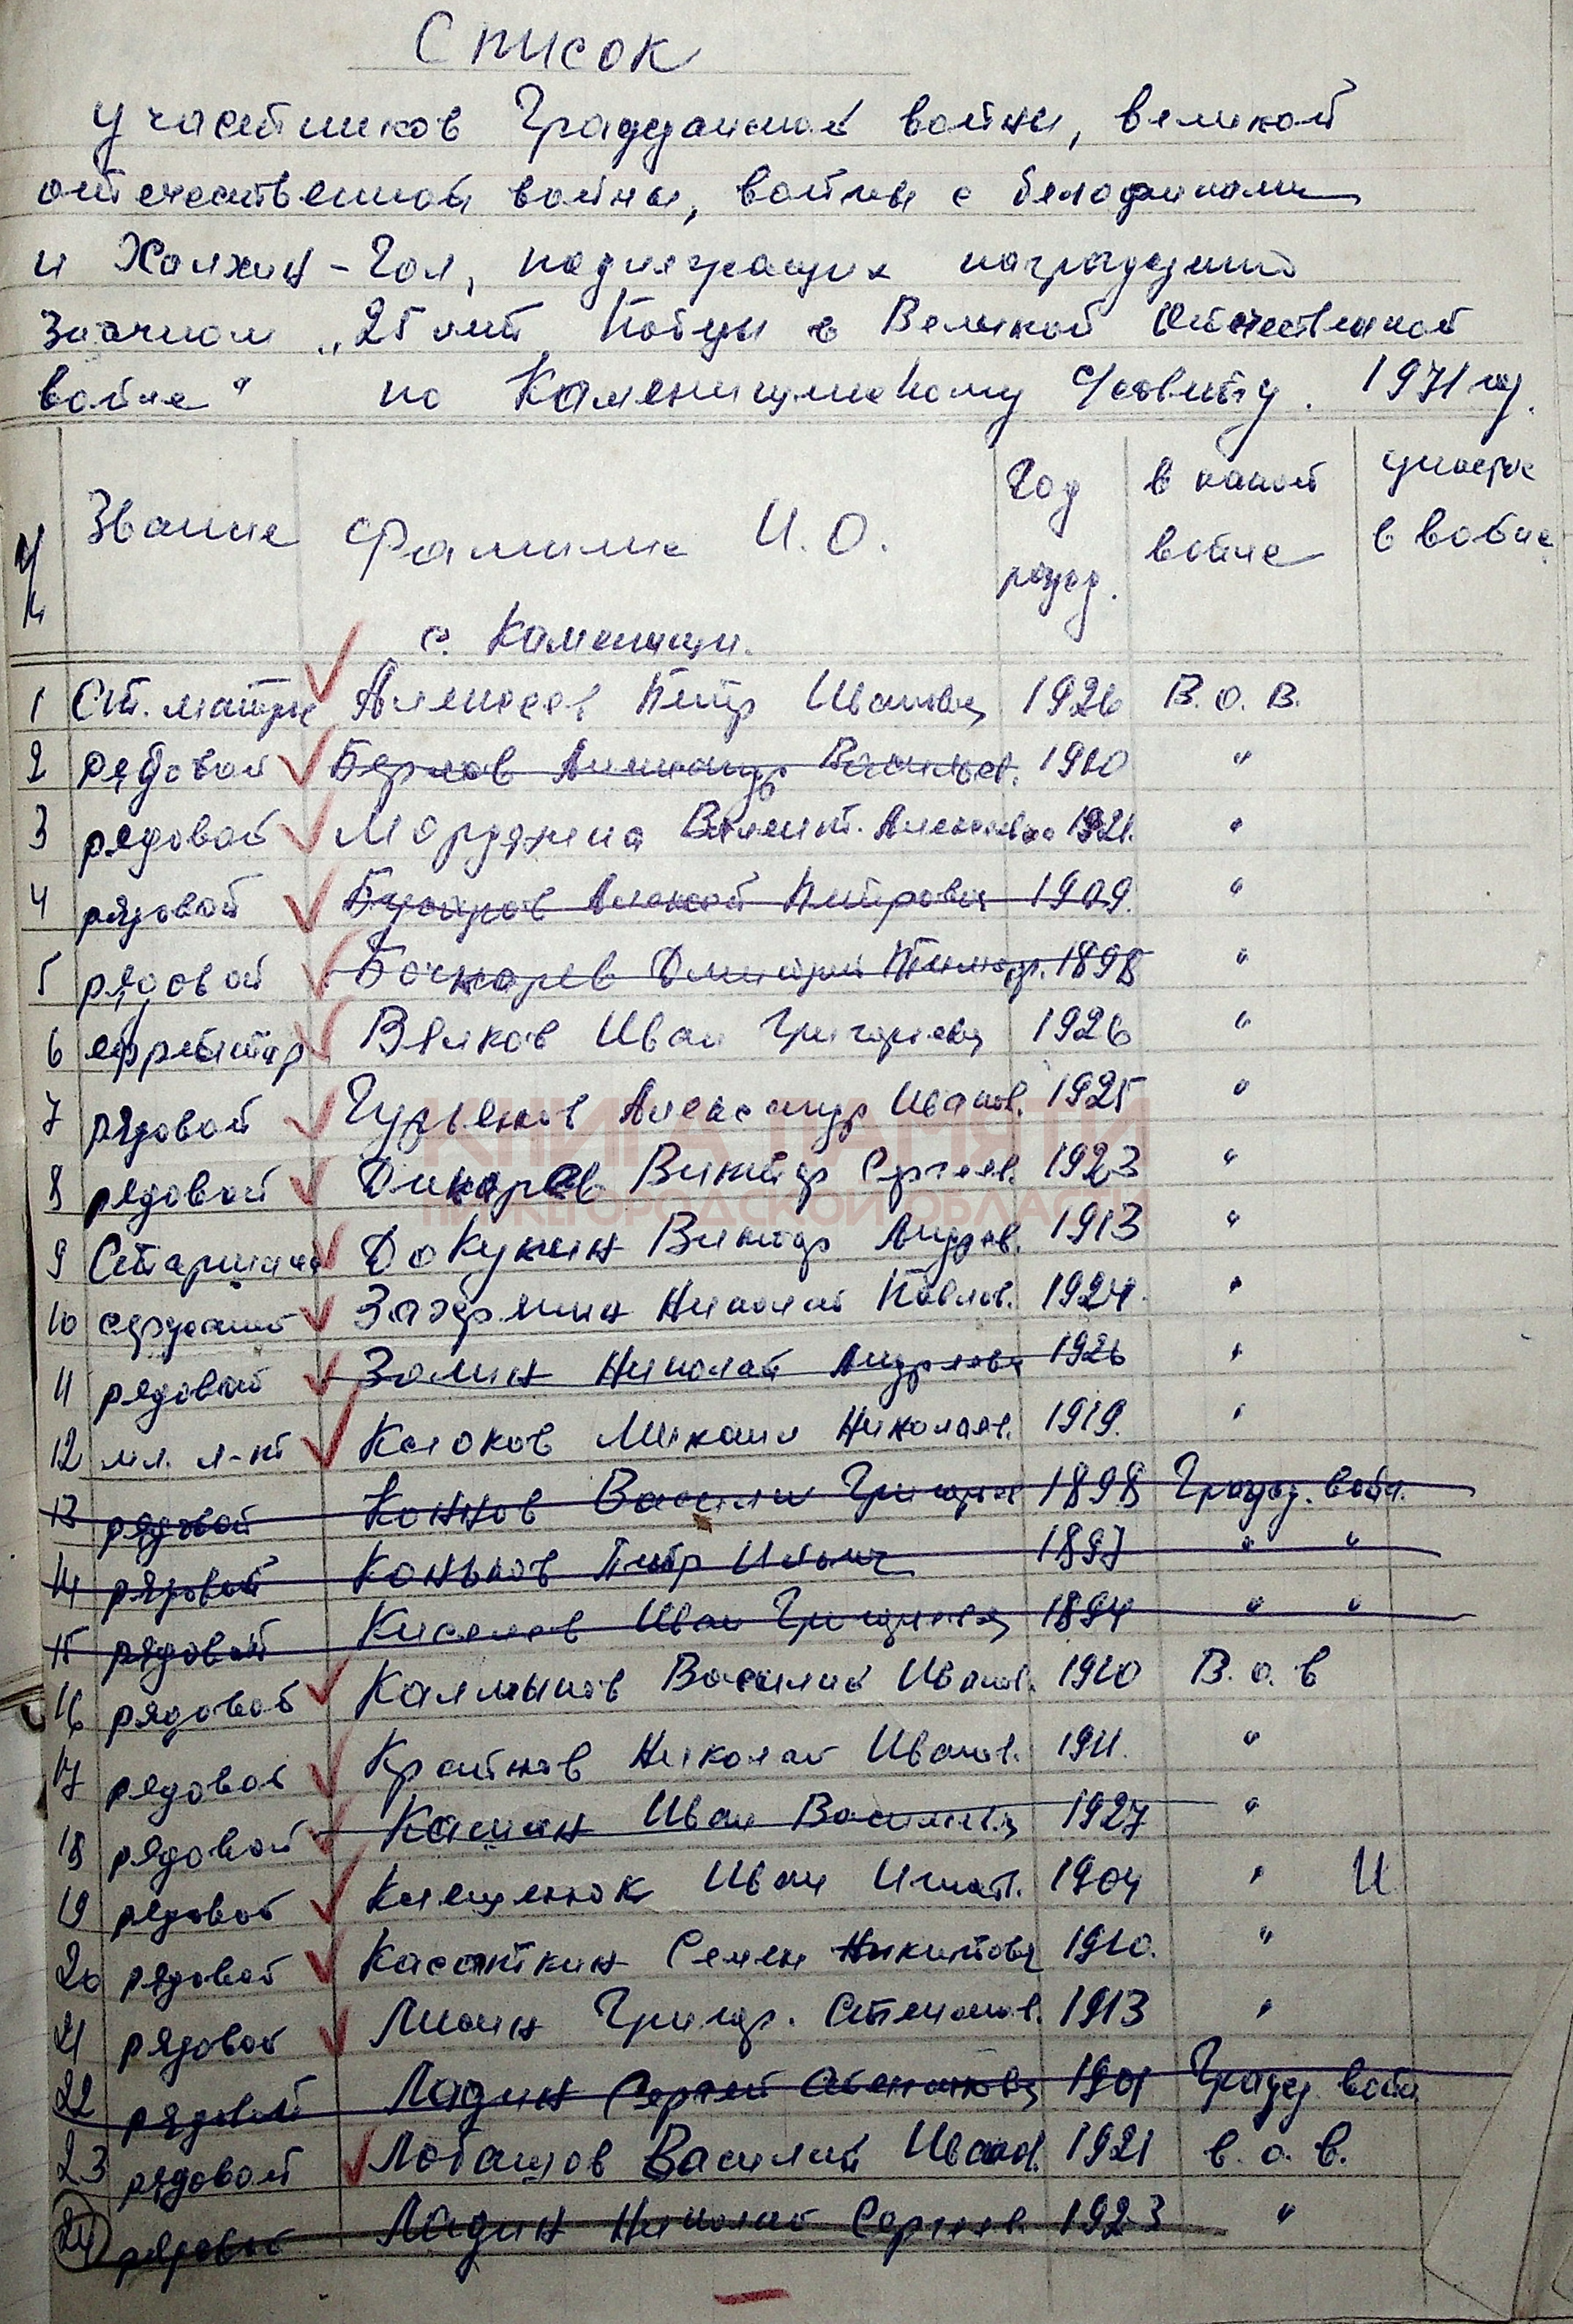 Список
участников Гражданской войны, великой
отечественной войны, войны с белофинами
и Халхин-Гол, подлежащих награждению
значком „25 лет Победы в Великой Отечественной
войне" по Каменищенскому с/совету. 1971 год.
Звание Фамилия И.О. Год рожд. в какой войне участие в войне
с. Каменищи.
1 Ст. матрос Алексеев Петр Иванович 1926 В.О.В.
2 рядовой Александр Васильев. 1910 "
3 рядовой Валент. Алексеевна 1921. "
4 рядовой Алексей Петрович 1909. "
5 рядовой Бочкарев Дмитрий 1898 "
6 ефрейтор Вялков Иван Григорьевич 1926 "
7 рядовой Гурьенков Александр Иванов. 1925 "
КНИГА ПАМЯТИ
8 рядовой Дикарев Виктор Сергеев. 1923 "
НИЖЕГОРОДСКОЙ ОБЛАСТИ
9 Старшина Докукин Виктор Андреев. 1913 "
10 сержант Николай Павлов. 1924. "
11 рядовой Зотин Николай Андреевич 1926 "
12 мл. л-нт Клоков Михаил Николаев. 1919. "
13 рядовой Коннов Василий Григорьев 1898 Гражд. войн.
14 рядовой Коньков Петр Ильич 1897 " "
15 рядовой Киселев Иван Григорьевич 1894 " "
16 рядовой Калмыков Василий Иванов. 1910 В.о.в
17 рядовой Крайнов Николай Иванов. 1911. "
18 рядовой Кашин Иван Васильевич 1927 "
19 рядовой Клещенок Иван Игнат. 1904 " И
20 рядовой Касаткин Семен Никитович 1910. "
21 рядовой Григор. Степанов. 1913 "
22 рядовой Ладин Сергей 1901 Гражд войн
23 рядовой Лобашов Василий Иванов. 1921 в.о.в.
24 рядовой Ладин Николай Сергеев. 1923 "